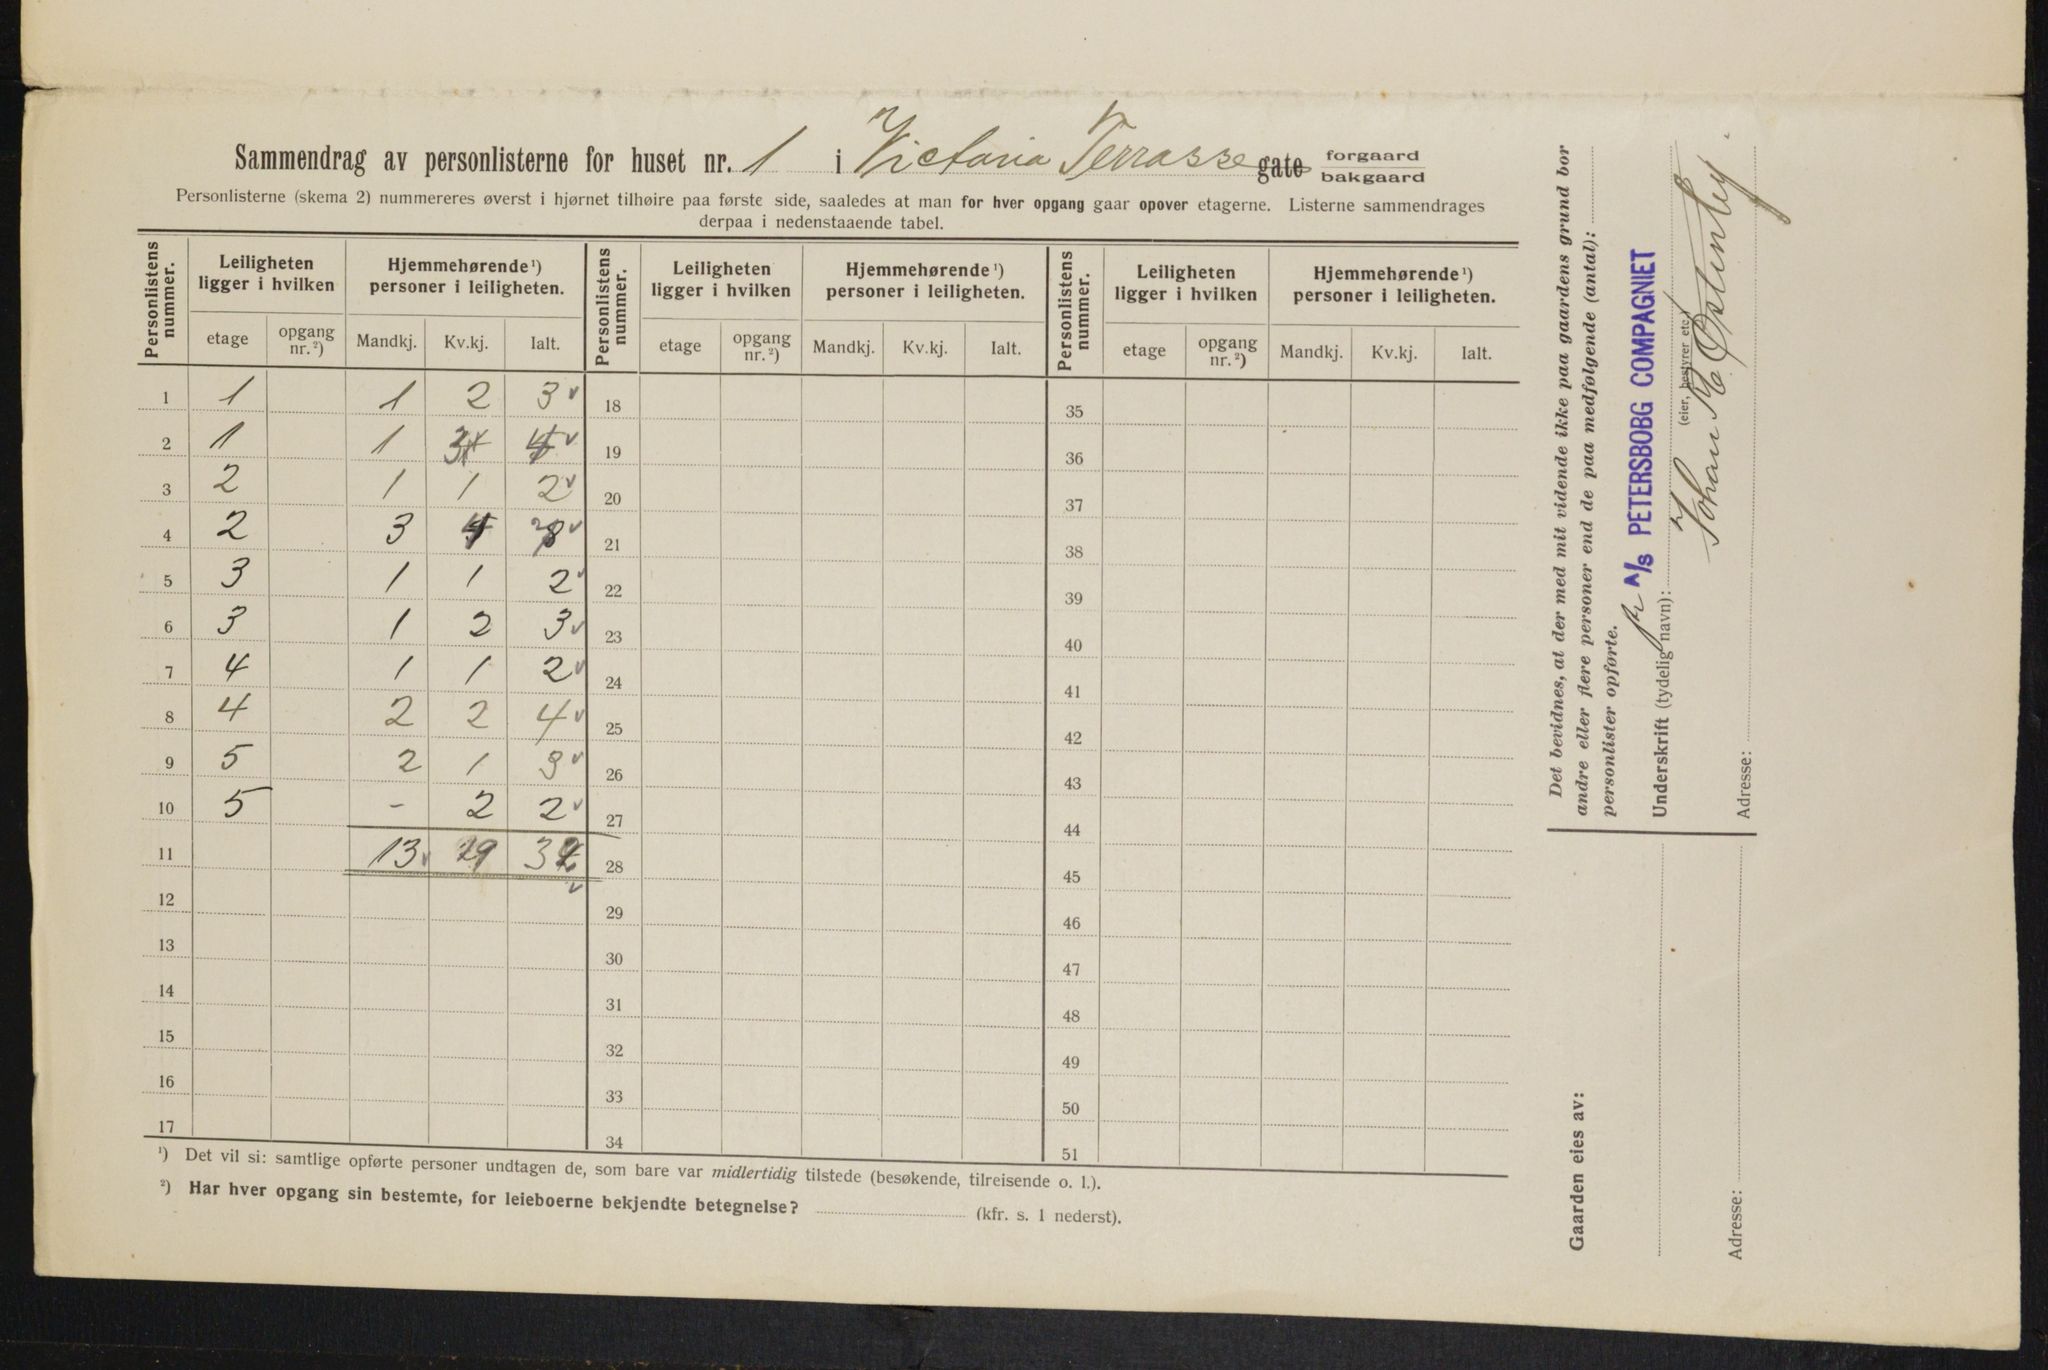 Sammendrag av personlisterne for huset nr. 1 i Victoria Terrasse gate forgaard bakgaard
Personlisterne (skema 2) nummereres øverst i hjørnet tilhøire paa første side, saaledes at man for hver opgang gaar opover etagerne. Listerne sammendrages
derpaa i nedenstaaende tabel.
Personlistens nummer. Leiligheten ligger i hvilken Hjemmehørende ¹) personer i leiligheten. Personlistens nummer. Leiligheten ligger i hvilken Hjemmehørende ¹) personer i leiligheten. Personlistens nummer. Leiligheten ligger i hvilken Hjemmehørende ¹) personer i leiligheten.
etage opgang nr. ²) Mandkj. Kv.kj. Ialt. etage opgang nr. ²) Mandkj. Kv.kj. Ialt. etage opgang nr. ²) Mandkj. Kv.kj. Ialt.
1 1 1 2 3 18 35
2 1 1 19 36
3 2 1 1 2 20 37
4 2 3 21 38
5 3 1 1 2 22 39
6 3 1 2 3 23 40
7 4 1 1 2 24 41
8 4 2 2 4 25 42
9 5 2 1 3 26 43
10 5 – 2 2 27 44
11 13 19 32 28 45
12 29 46
13 30 47
14 31 48
15 32 49
16 33 50
17 34 51
¹) Det vil si: samtlige opførte personer undtagen de, som bare var midlertidig tilstede (besøkende, tilreisende o. l.).
²) Har hver opgang sin bestemte, for leieboerne bekjendte betegnelse? (kfr. s. 1 nederst).
Det bevidnes, at der med mit vidende ikke paa gaardens grund bor
andre eller flere personer end de paa medfølgende (antal):
personlister opførte.
A/S PETERSBORG COMPAGNIET
Underskrift (tydelig navn): (eier, bestyrer etc.)
Johan
Adresse:
Gaarden eies av:
Adresse: